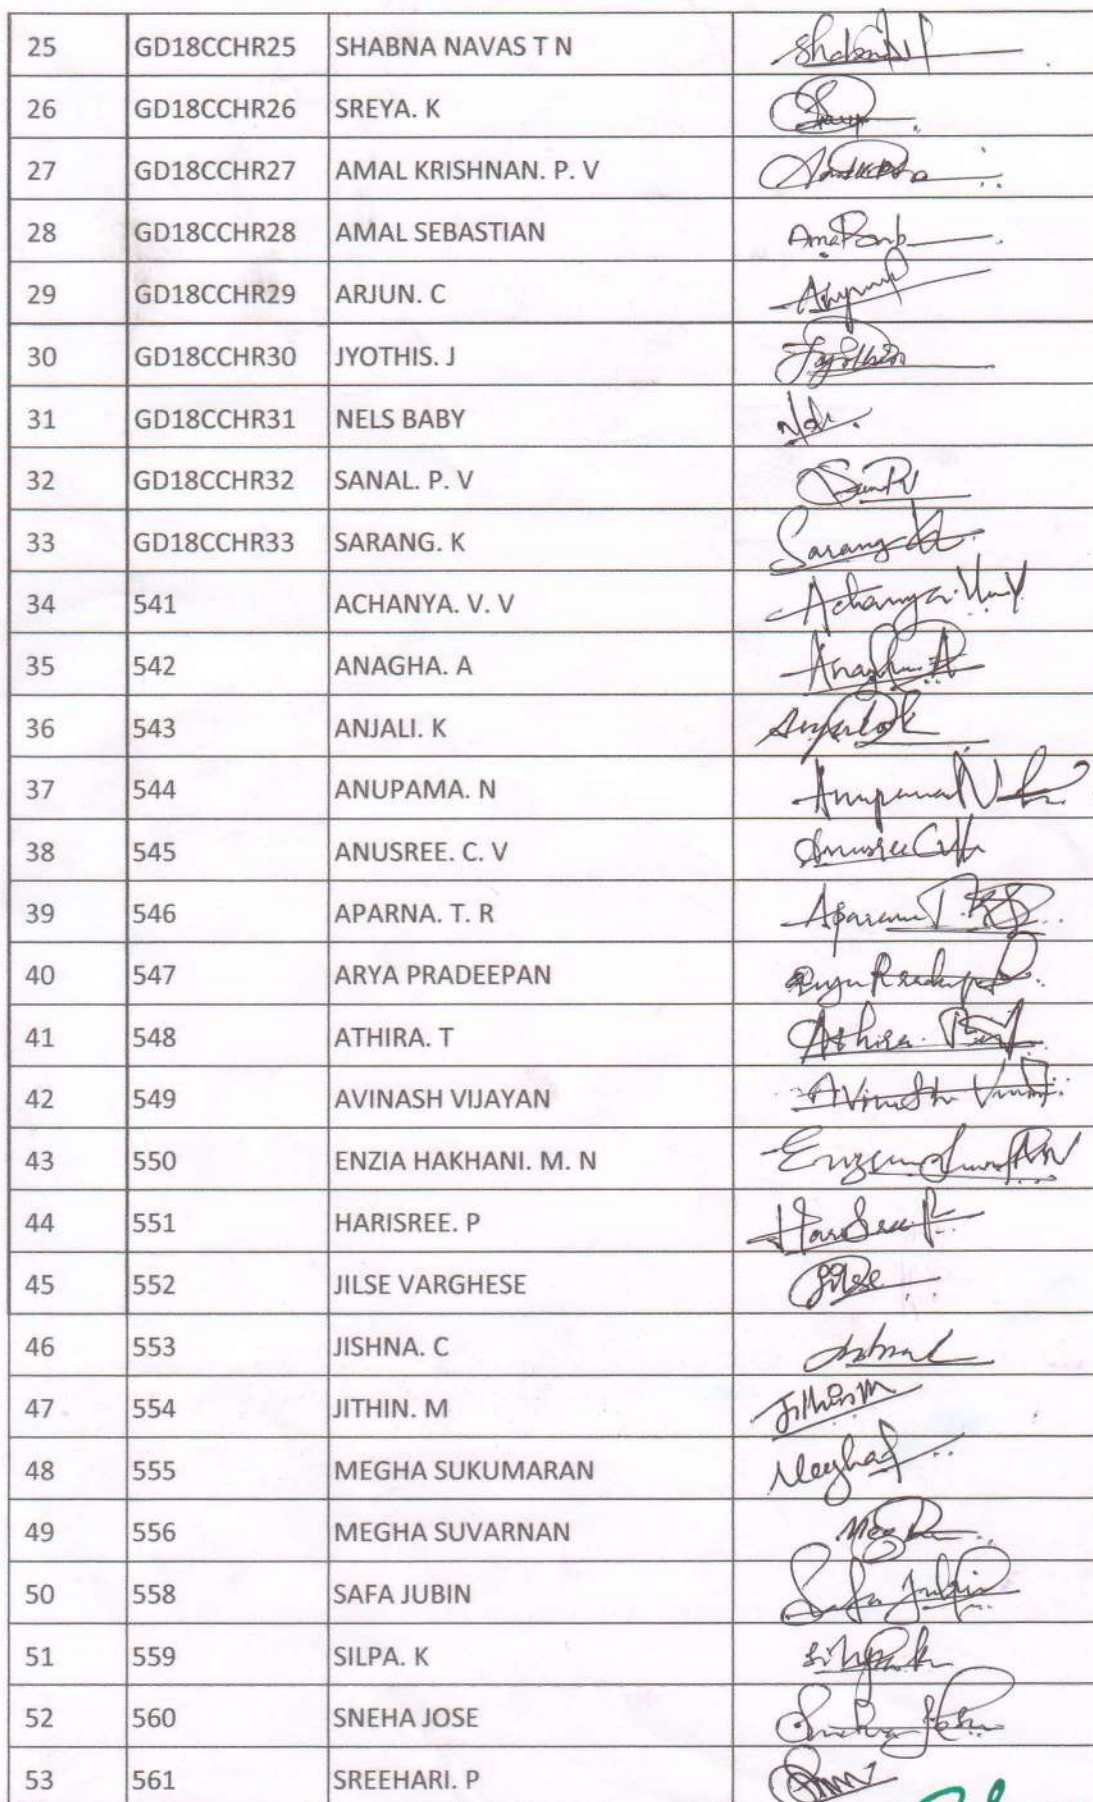 25 GD18CCHR25 SHABNA NAVAS T N
26 GD18CCHR26 SREYA. K
27 GD18CCHR27 AMAL KRISHNAN. P. V
28 GD18CCHR28 AMAL SEBASTIAN
29 GD18CCHR29 ARJUN. C
30 GD18CCHR30 JYOTHIS. J Jyothis
31 GD18CCHR31 NELS BABY
32 GD18CCHR32 SANAL. P. V
33 GD18CCHR33 SARANG. K Sarang K
34 541 ACHANYA. V. V Achanya
35 542 ANAGHA. A Anagha A
36 543 ANJALI. K
37 544 ANUPAMA. N Anupama N
38 545 ANUSREE. C. V Anusree C V
39 546 APARNA. T. R
40 547 ARYA PRADEEPAN
41 548 ATHIRA. T Athira
42 549 AVINASH VIJAYAN Avinash
43 550 ENZIA HAKHANI. M. N
44 551 HARISREE. P HariSree P
45 552 JILSE VARGHESE Jilse
46 553 JISHNA. C
47 554 JITHIN. M Jithin M
48 555 MEGHA SUKUMARAN Megha
49 556 MEGHA SUVARNAN
50 558 SAFA JUBIN Safa Jubin
51 559 SILPA. K
52 560 SNEHA JOSE Sneha
53 561 SREEHARI. P